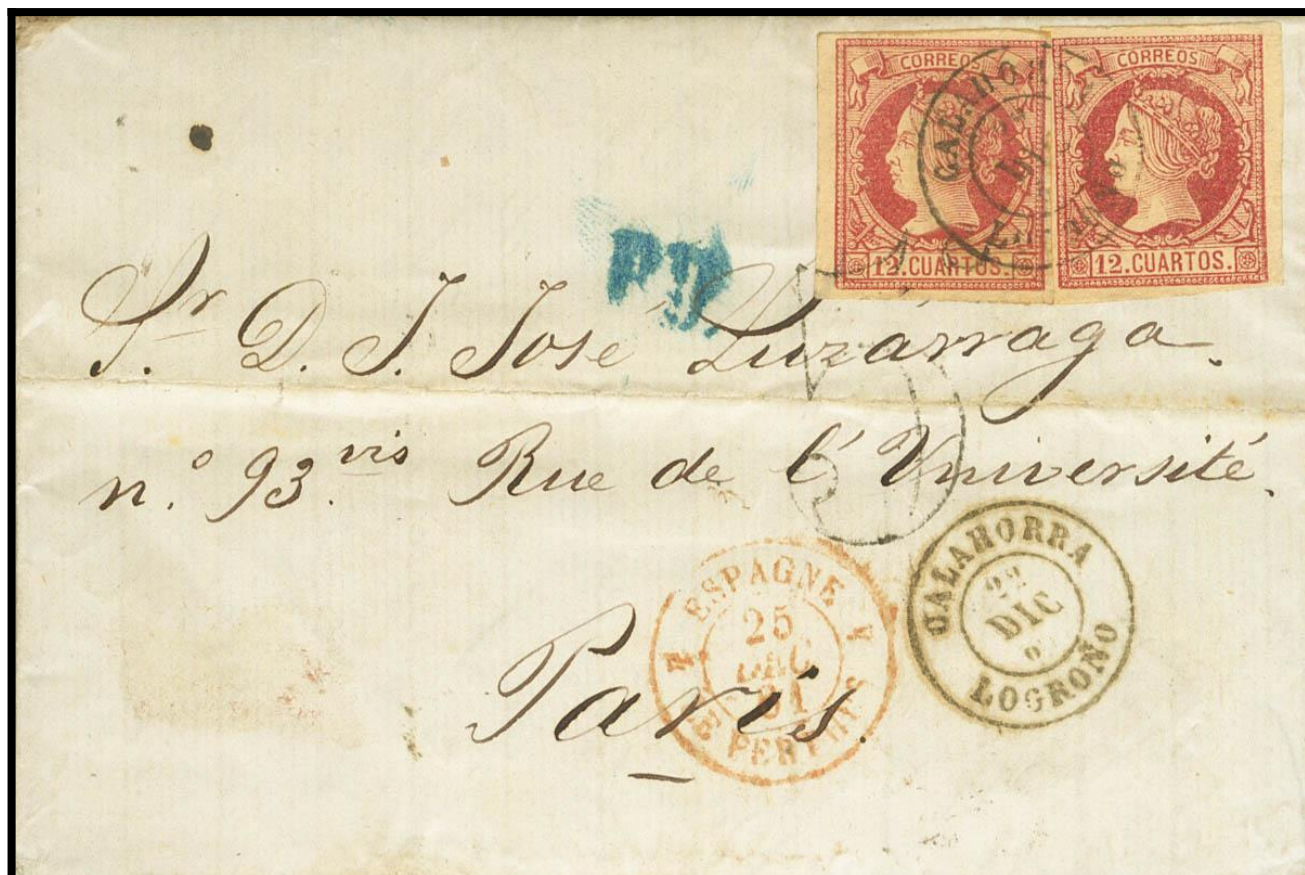 CORREOS CORREOS
12.CUARTOS. 12.CUARTOS.
PD.
Sr. D. J. José Luzárraga.
n.º 93. vis Rue de l'Université.
5
CALAHORRA
22
DIC
LOGROÑO
ESPAGNE
25
DEC
61
París.